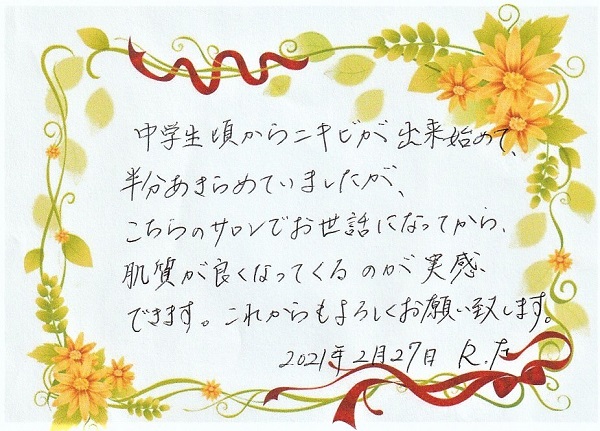 中学生頃からニキビが出来始めて、
半分あきらめていましたが、
こちらのサロンでお世話になってから、
肌質が良くなってくるのが実感
できます。これからもよろしくお願い致します。
2021年2月27日 R.